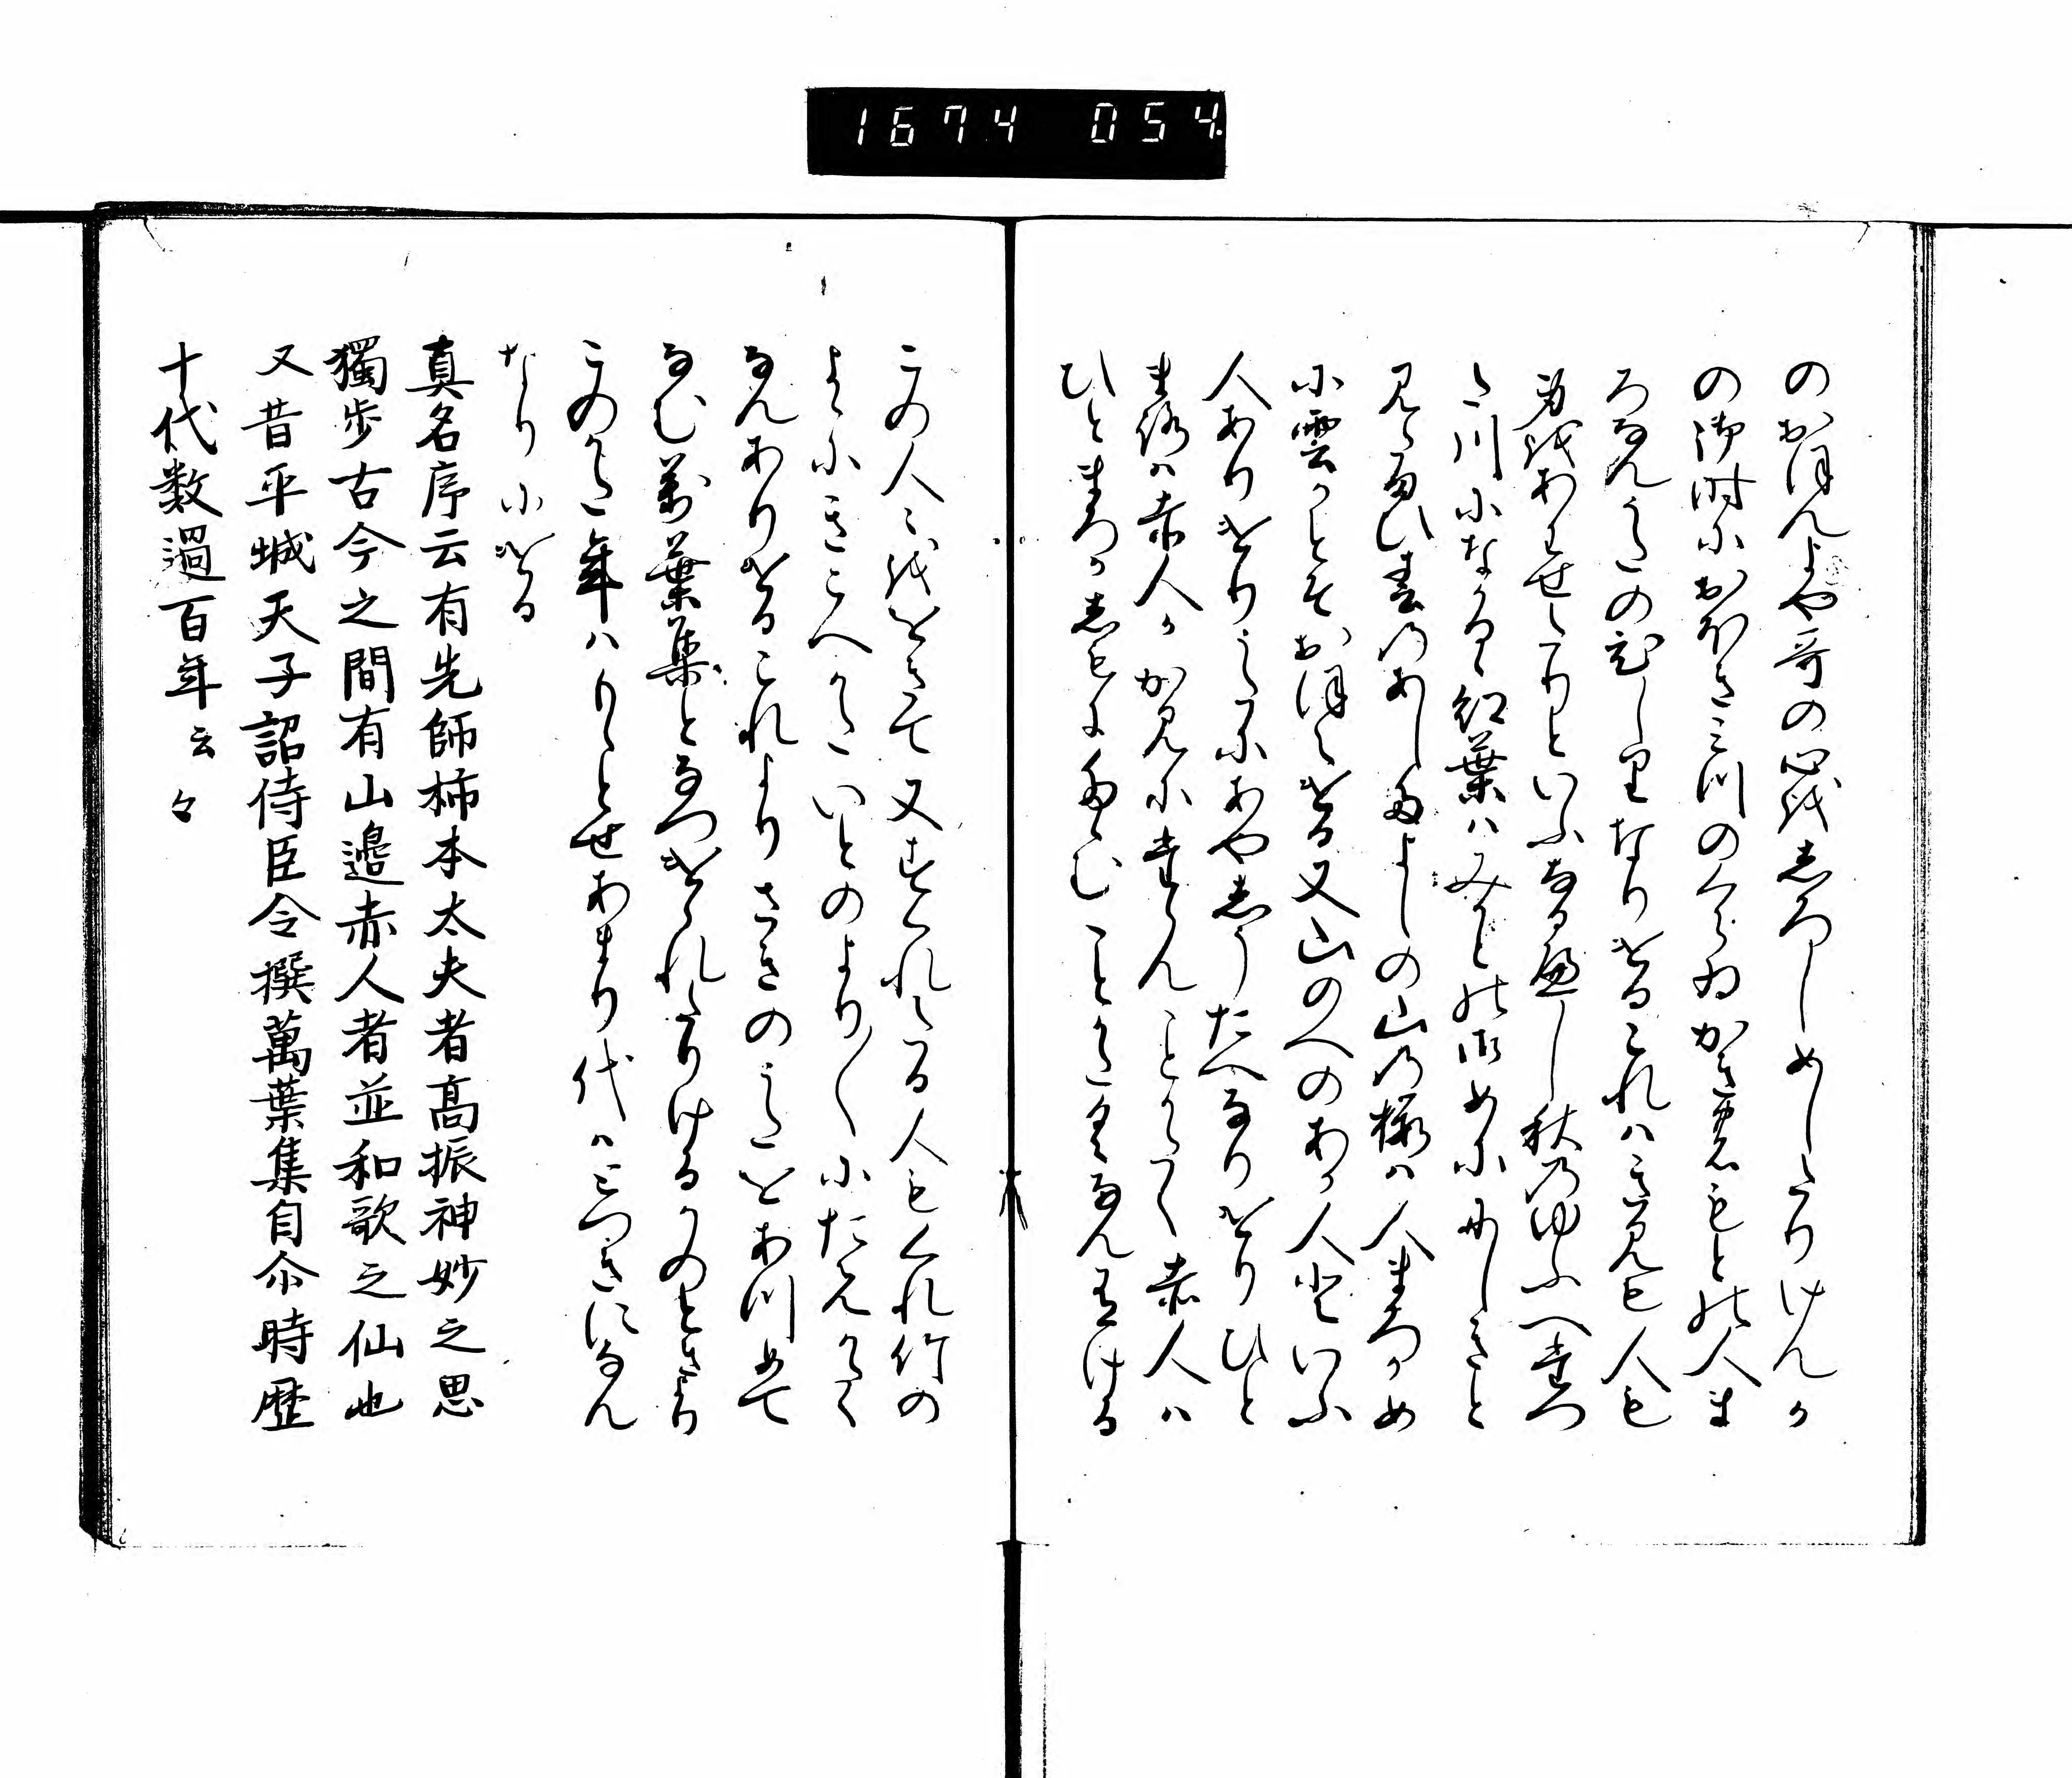 1674 054.
のおほんよや哥の心をしろしめしたりけんか
の御時におほき三川のくらゐかきのもとの人ま
ろなんうたのひしりなりけるこれはきみも人も
身をあはせたりといふなるへし秋のゆふへたつ
た川になかるゝ紅葉はみかとの御めににしきと
見え給ひ春のあしたよしのの山の桜は人まろかめ
に雲かとそおほえける又山のへのあか人といふ
人ありけりうたにあやしうたへなりけりひと
まろは赤人かかみにたゝんことかたく赤人は
ひとまろかしもにたゝむことかたくなん有ける
この人々ををきて又すくれたる人もくれ竹の
よゝにきこへかたいとのより〱にたえかたく
なんありけるこれよりさきのうたをあつめて
なむ萬葉集となつけられたりけるかのときより
このかた年はもゝとせあまり代は三つきになん
なりにける
真名序云有先師柿本太夫者高振神妙之思
獨歩古今之間有山邉赤人者並和歌之仙也
又昔平城天子詔侍臣令撰萬葉集自尒時歴
十代数過百年云々